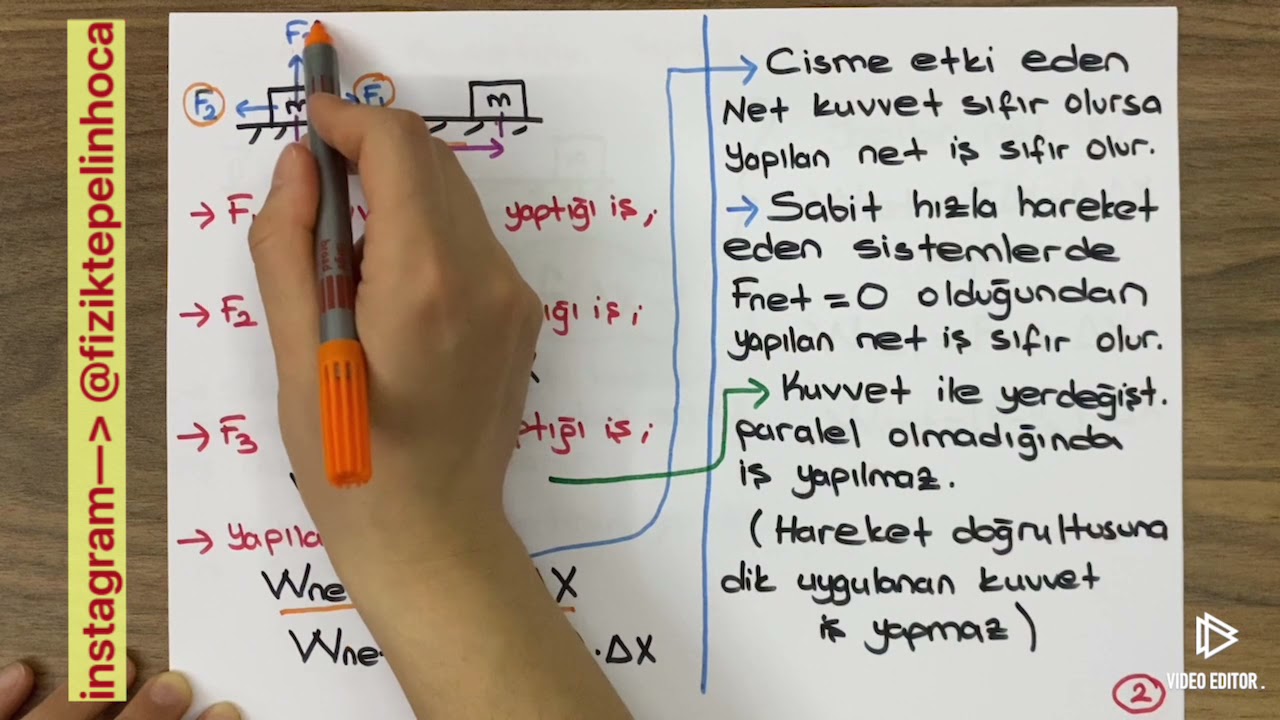 instagram—> @fiziktepelinhoca
F₂
m
F₁
m
→ F₁ yaptığı iş;
→ F₂ iş;
→ F₃ iş;
→
X
.ΔX
→ Cisme etki eden
Net kuvvet sıfır olursa
yapılan net iş sıfır olur.
→ Sabit hızla hareket
eden sistemlerde
Fnet = 0 olduğundan
yapılan net iş sıfır olur.
→ Kuvvet ile yerdeğişt.
paralel olmadığında
iş yapılmaz.
(Hareket doğrultusuna
dik uygulanan kuvvet
iş yapmaz)
2
VIDEO EDITOR.